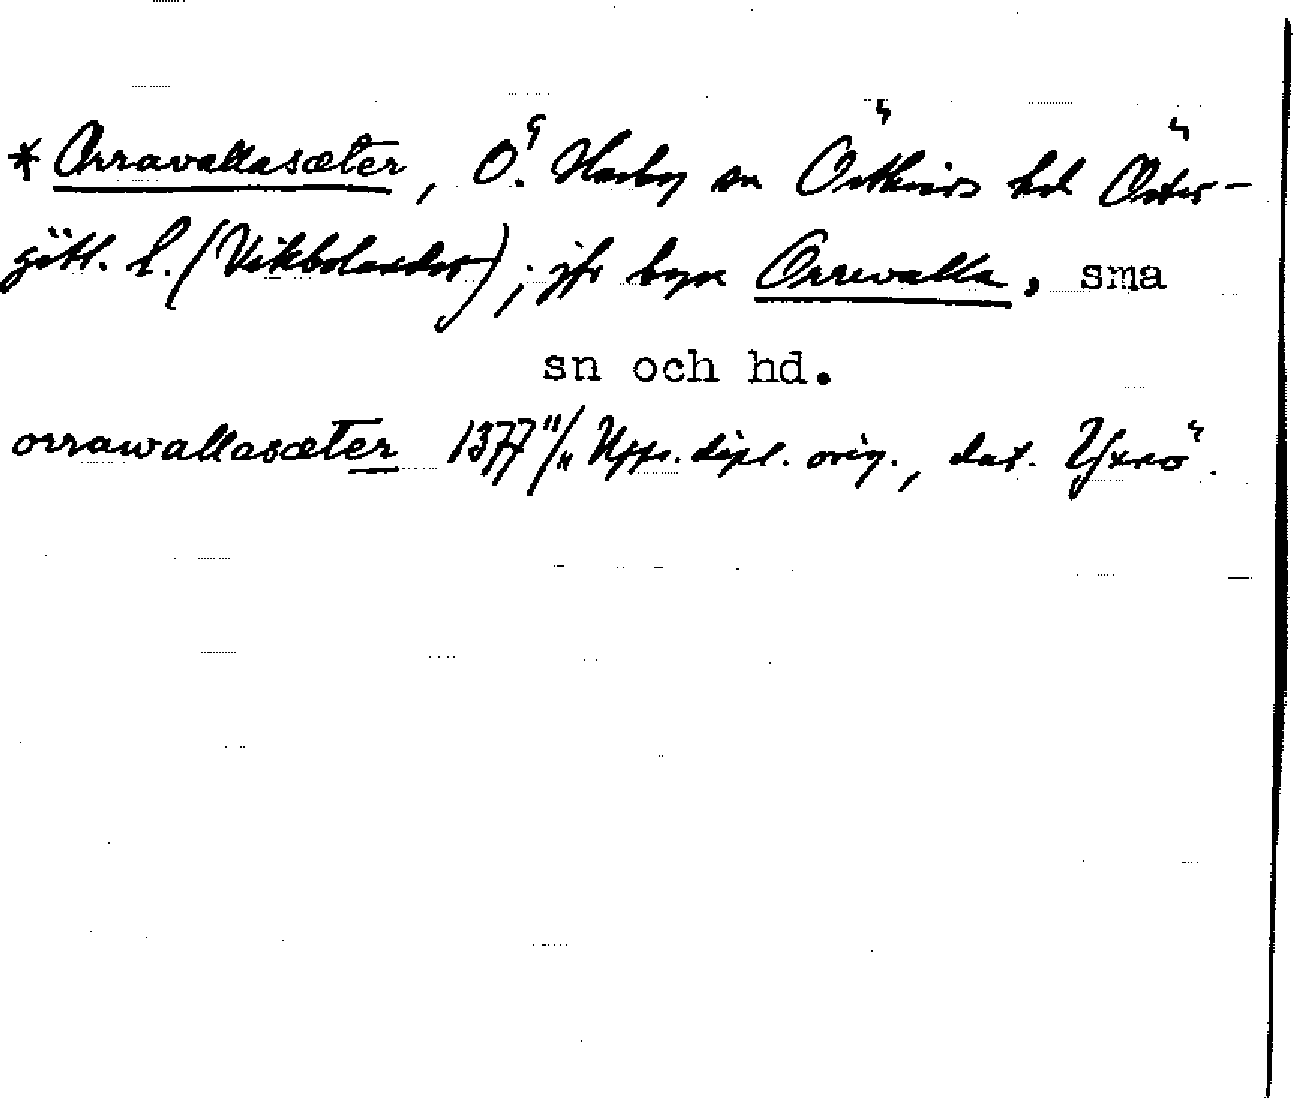 * Orravallasæter, Ö. Husby sn Östkinds hd Öster-
götl. l. (Vikbolandet); jfr byn Orrevalla, sma
sn och hd.
orrawallasæter 1377 11/11 Upps. dipl. orig., dat. Yxnö.